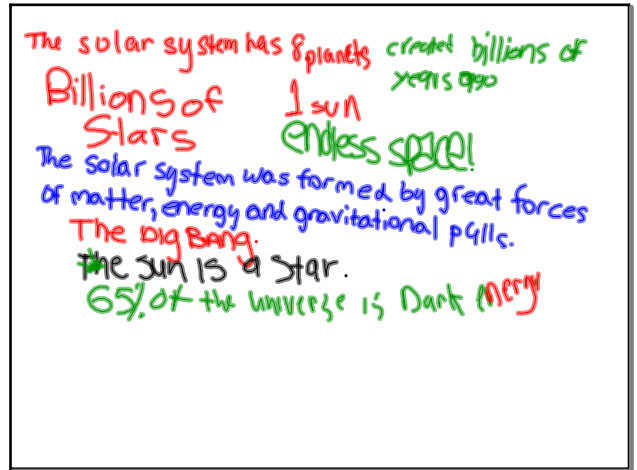 The solar system has 8 planets created billions of
years ago
Billions of 1 sun
Stars endless space!
The solar system was formed by great forces
of matter, energy and gravitational pulls.
The Big Bang.
The sun is a star.
65% of the universe is Dark energy